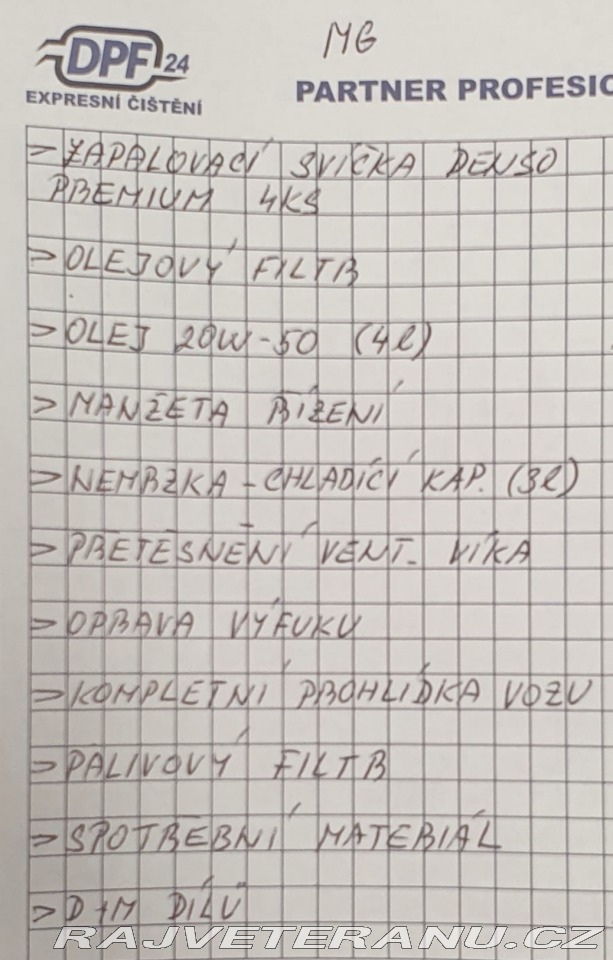 MG
DPF 24
EXPRESNÍ ČIŠTĚNÍ
PARTNER PROFESIO
⇒ ZAPALOVACÍ SVÍČKA DENSO
PREMIUM 4KS
⇒ OLEJOVÝ FILTR
⇒ OLEJ 20W-50 (4l)
⇒ MANŽETA ŘÍZENÍ
⇒ NEMRZKA - CHLADÍCÍ KAP. (3l)
⇒ PŘETĚSNĚNÍ VENT. VÍKA
⇒ OPRAVA VÝFUKU
⇒ KOMPLETNÍ PROHLÍDKA VOZU
⇒ PALIVOVÝ FILTR
⇒ SPOTŘEBNÍ MATERIÁL
⇒ D+M DÍLŮ
RAJVETERANU.CZ